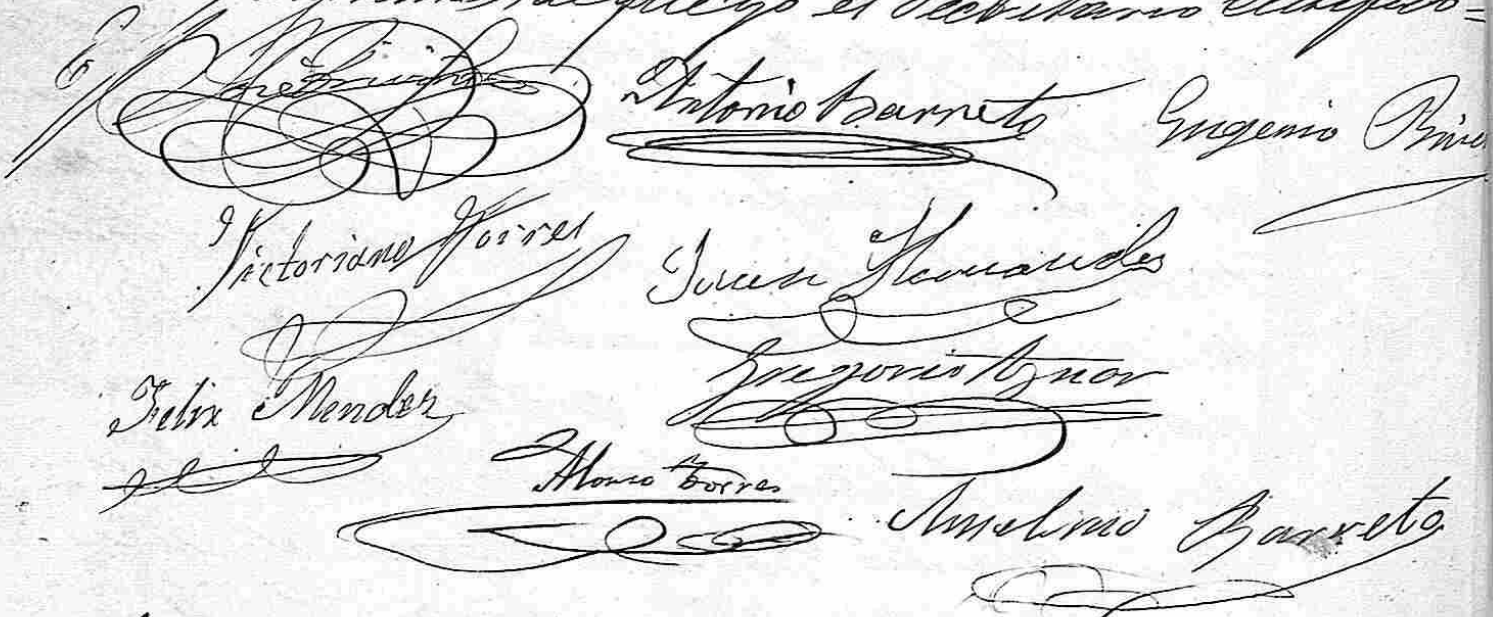 de que yo el Secretario certifico=
Antonio Barreto Eugenio
Victoriano Torres
Juan Hernandes
Gregorio Aznar
Felix Mendez
Alonso Torres
Anselmo Barreto